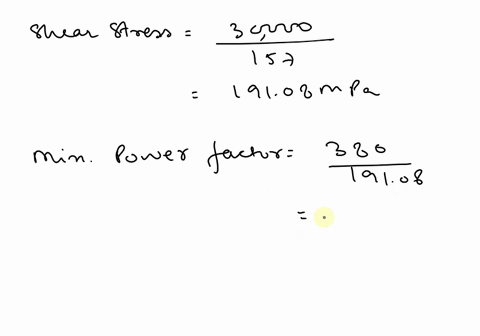 Shear Stress = 30,000
157
= 191.08 mPa
Min. Power factor = 380
191.08
= .